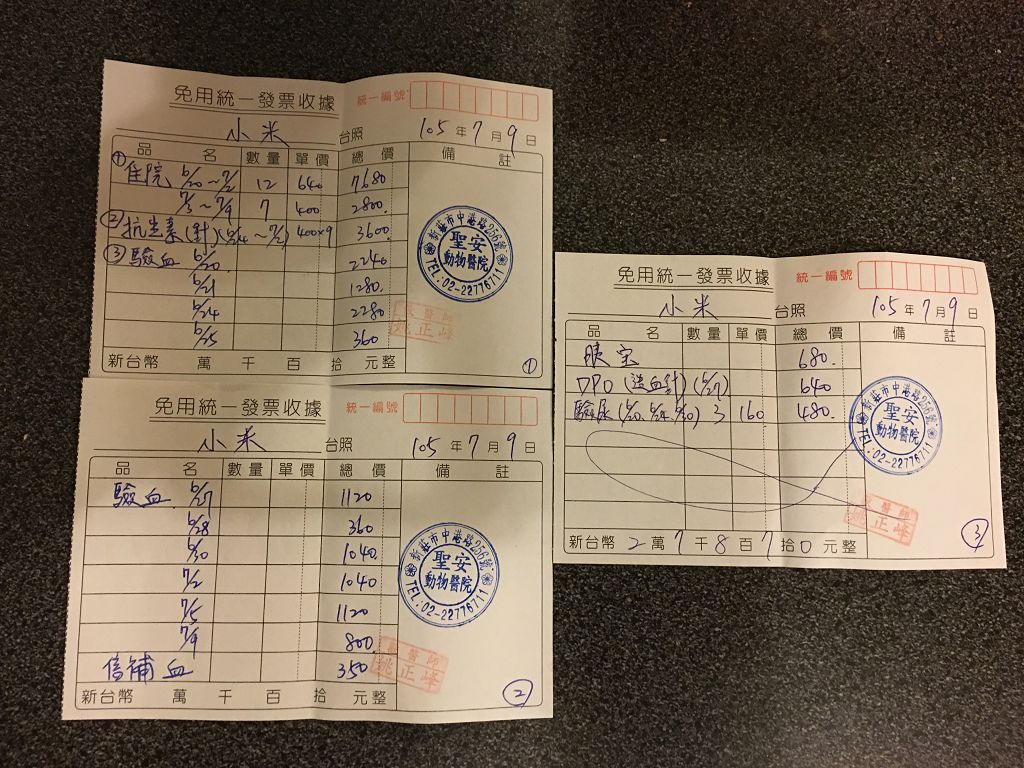 免用統一發票收據
統一編號
小米 台照 105年7月9日
品名 數量 單價 總價 備註
①住院 6/20～7/2 12 640 7680
7/3～7/9 7 400 2800.
②抗生素(針)(6/24～7/2) 400×9 3600.
③驗血 6/20. 2240
6/21 1280.
6/24 2280
6/25 360
新台幣 萬 千 百 拾 元整
①
新莊市中港路256號
聖安
動物醫院
TEL:02-22776711
獸醫師
姚正峰
免用統一發票收據
統一編號
小米 台照 105年7月9日
品名 數量 單價 總價 備註
驗血 6/27 1120
6/28 360
6/30 1040
7/2 1040
7/5 1120
7/9 800.
倍補血 350
新台幣 萬 千 百 拾 元整
②
新莊市中港路256號
聖安
動物醫院
TEL:02-22776711
獸醫師
姚正峰
免用統一發票收據
統一編號
小米 台照 105年7月9日
品名 數量 單價 總價 備註
胰宝 680.
(造血針)(6/27) 640
驗尿(6/20. 6/24. 6/30) 3 160 480.
新台幣2萬7千8百7拾0元整
③
新莊市中港路256號
聖安
動物醫院
TEL:02-22776711
獸醫師
姚正峰